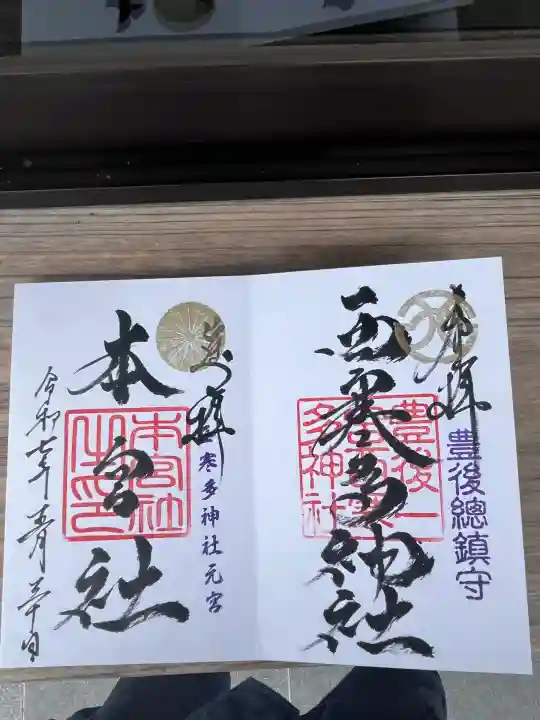 奉拝
豊後總鎮守
西寒多神社
豊後一
多神社
奉拝
寒多神社元宮
本宮社
本宮社
之印
令和七年 五月 三十日